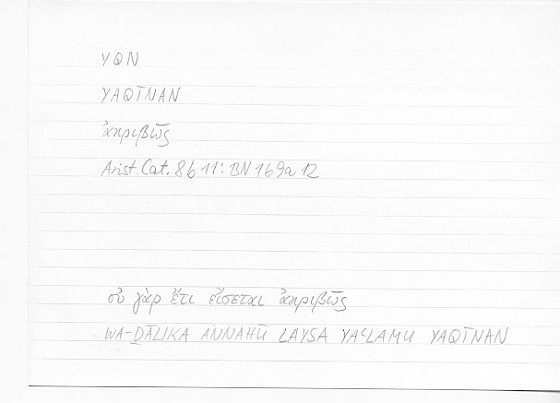 YQN
YAQĪNAN
ἀκριβῶς
Arist. Cat. 8b 11: BN 169a 12
οὐ γὰρ ἔτι εἴσεται ἀκριβῶς
WA-ḎĀLIKA ANNAHŪ LAYSA YAʿLAMU YAQĪNAN